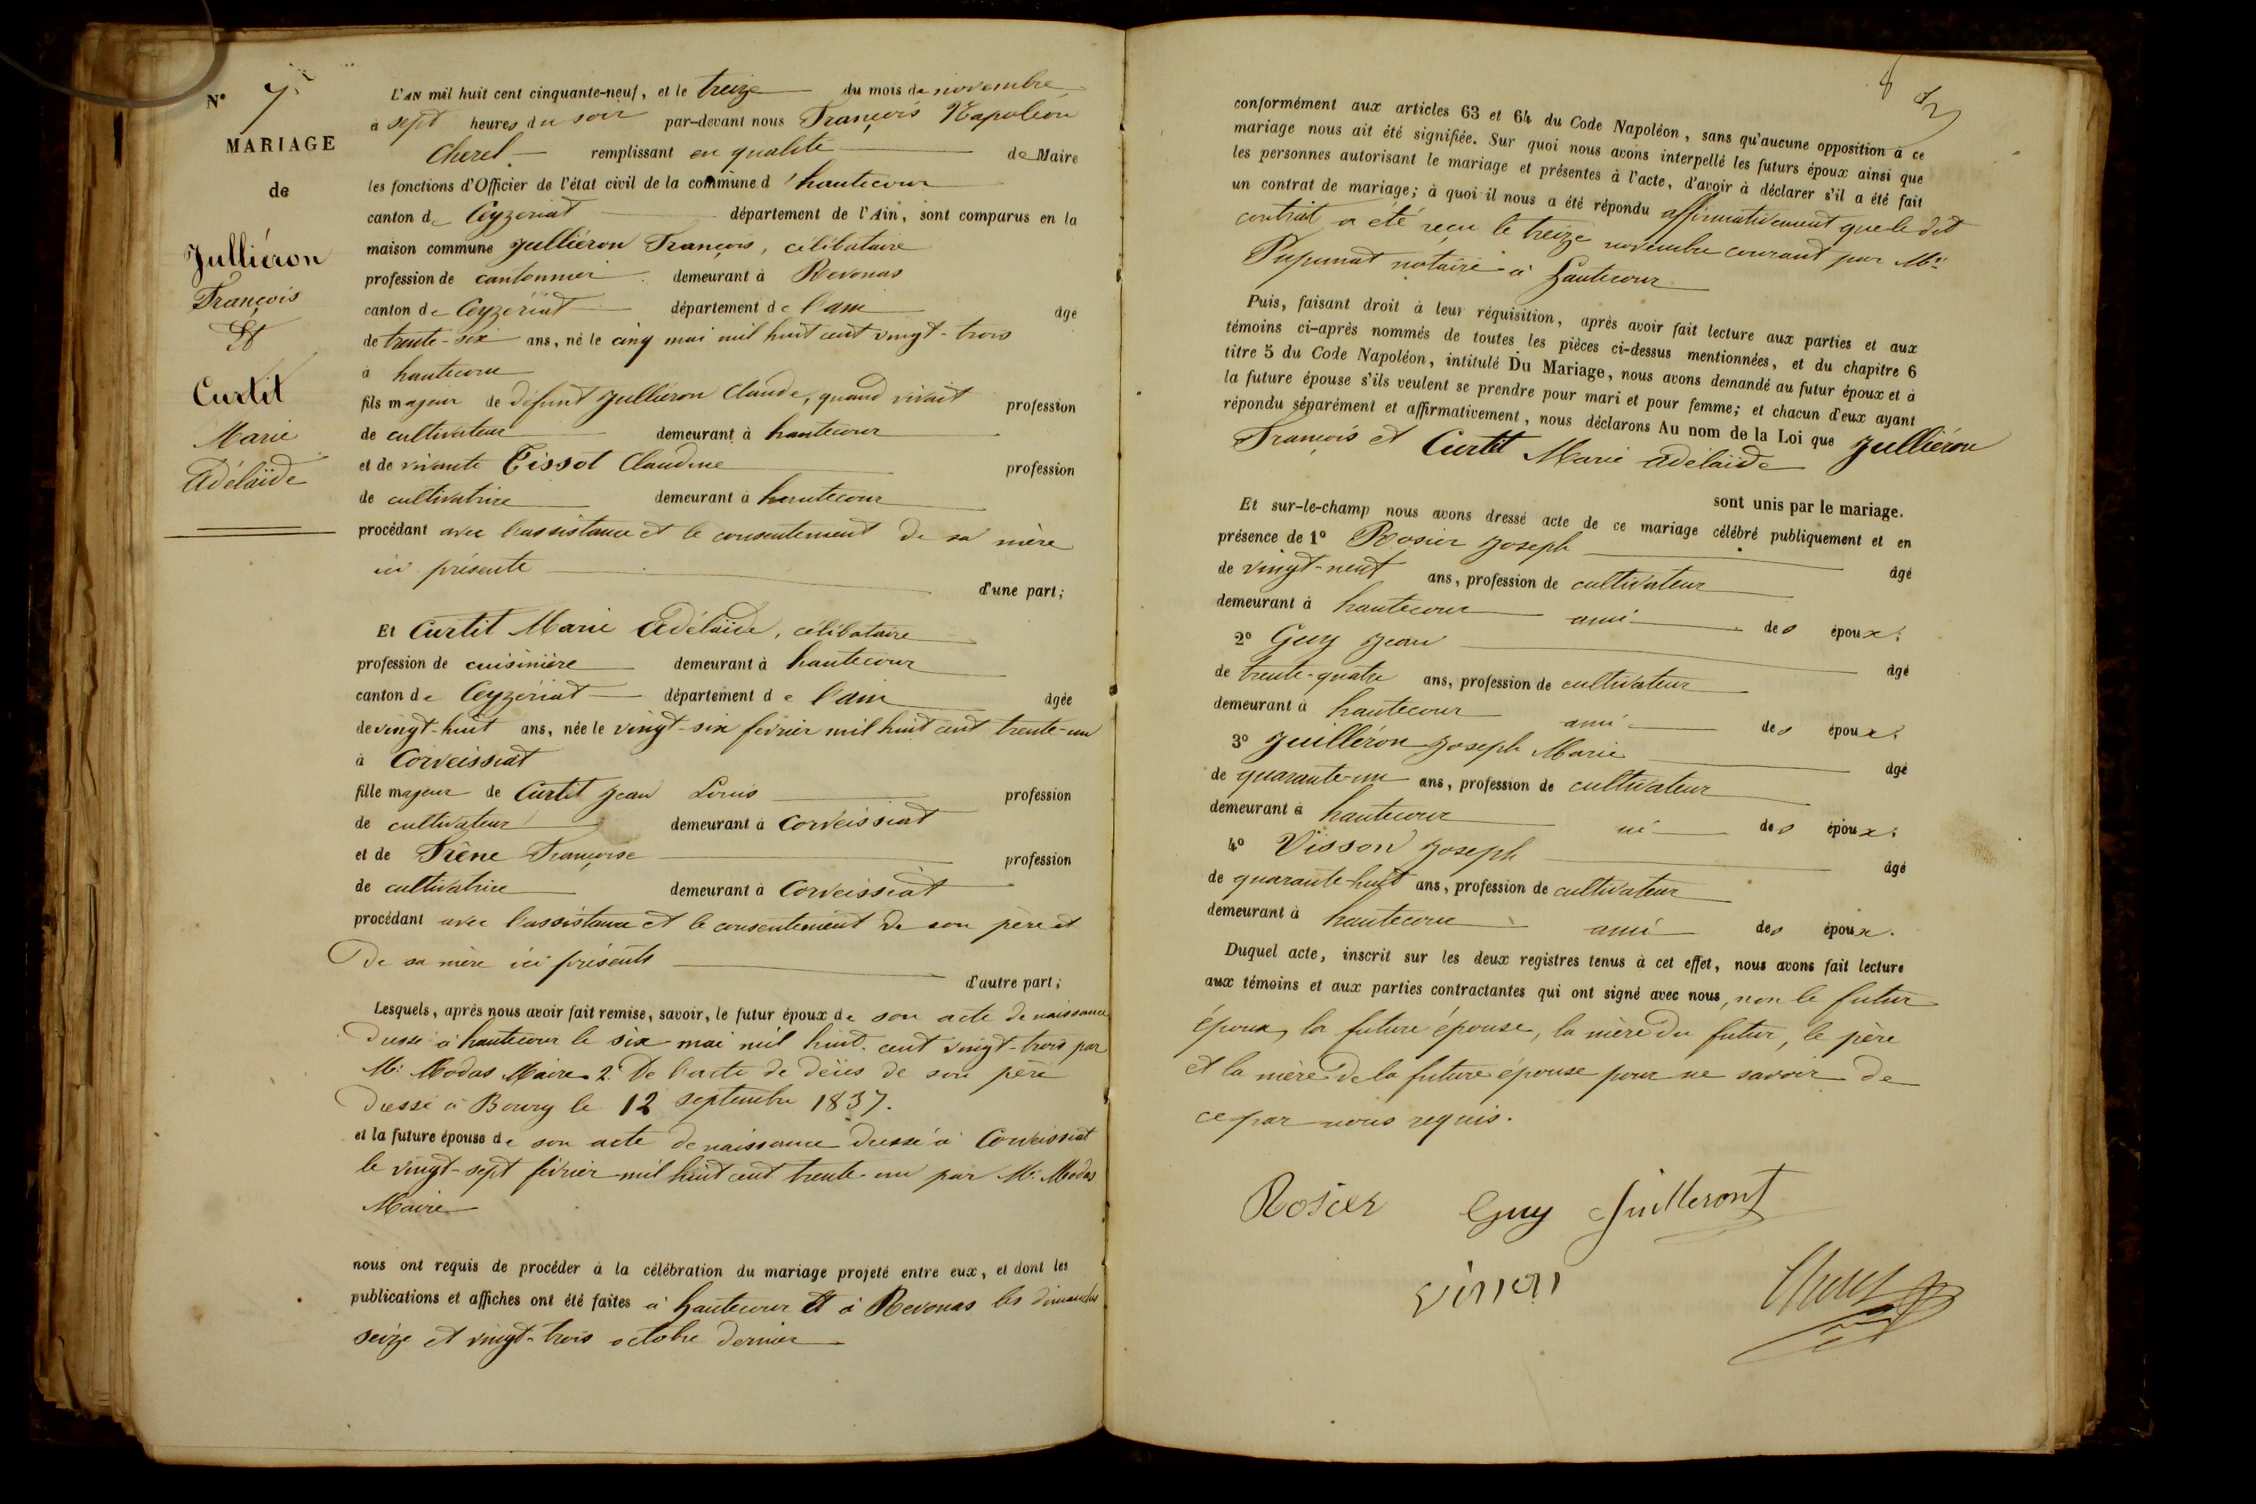 N° 7
MARIAGE
de
Julliéron
François
Et
Curtit
Marie
Adélaïde
L'AN mil huit cent cinquante-neuf, et le treize du mois de novembre
à sept heures du soir par-devant nous François Napoléon
Cherel remplissant en qualité de Maire
les fonctions d'Officier de l'état civil de la commune d'hautecour
canton de Ceyzeriat département de l'Ain, sont comparus en la
maison commune Julliéron François, célibataire
profession de cantonnier demeurant à Revonas
canton de Ceyzériat département de l'ain âgé
de trente-six ans, né le cinq mai mil huit cent vingt-trois
à hautecour
fils majeur de défunt Julliéron Claude, quand vivait profession
de cultivateur demeurant à hautecour
et de vivante Tissot Claudine profession
de cultivatrice demeurant à hautecour
procédant avec l'assistance et le consentement de sa mère
ici présente
d'une part;
Et Curtit Marie Adélaïde, célibataire
profession de cuisinière demeurant à hautecour
canton de Ceyzériat département de l'ain âgée
de vingt-huit ans, née le vingt-six février mil huit cent trente-un
à Corveissiat
fille majeur de Curtit Jean Louis profession
de cultivateur demeurant à Corveissiat
et de Frène Françoise profession
de cultivatrice demeurant à Corveissiat
procédant avec l'assistance et le consentement de son père et
de sa mère ici présents
d'autre part;
Lesquels, après nous avoir fait remise, savoir, le futur époux de son acte de naissance
dressé à hautecour le six mai mil huit cent vingt-trois par
Mr Modas Maire 2° De l'acte de décès de son père
dressé à Bourg le 12 septembre 1837.
et la future épouse de son acte de naissance dressé à Corveissiat
le vingt-sept février mil huit cent trente-un par Mr Modas
Maire
nous ont requis de procéder à la célébration du mariage projeté entre eux, et dont les
publications et affiches ont été faites à hautecour et à Revonas les dimanches
seize et vingt-trois octobre dernier
8
conformément aux articles 63 et 64 du Code Napoléon, sans qu'aucune opposition à ce
mariage nous ait été signifiée. Sur quoi nous avons interpellé les futurs époux ainsi que
les personnes autorisant le mariage et présentes à l'acte, d'avoir à déclarer s'il a été fait
un contrat de mariage; à quoi il nous a été répondu affirmativement que le dit
contrat a été reçu le treize novembre courant par Mr
Pupunat notaire à hautecour
Puis, faisant droit à leur réquisition, après avoir fait lecture aux parties et aux
témoins ci-après nommés de toutes les pièces ci-dessus mentionnées, et du chapitre 6
titre 5 du Code Napoléon, intitulé Du Mariage, nous avons demandé au futur époux et à
la future épouse s'ils veulent se prendre pour mari et pour femme; et chacun d'eux ayant
répondu séparément et affirmativement, nous déclarons Au nom de la Loi que Julliéron
François et Curtit Marie adelaïde
sont unis par le mariage.
Et sur-le-champ nous avons dressé acte de ce mariage célébré publiquement et en
présence de 1° Rosier Joseph âgé
de vingt-neuf ans, profession de cultivateur
demeurant à hautecour ami des époux;
2° Guy Jean âgé
de trente-quatre ans, profession de cultivateur
demeurant à hautecour ami des époux;
3° Juilléron Joseph Marie âgé
de quarante-un ans, profession de cultivateur
demeurant à hautecour des époux;
4° Visson Joseph âgé
de quarante-huit ans, profession de cultivateur
demeurant à hautecour ami des époux.
Duquel acte, inscrit sur les deux registres tenus à cet effet, nous avons fait lecture
aux témoins et aux parties contractantes qui ont signé avec nous, non le futur
époux, la future épouse, la mère du futur, le père
et la mère de la future épouse pour ne savoir de
ce par nous requis.
Rosier Guy Juilleront
Visson Cherel